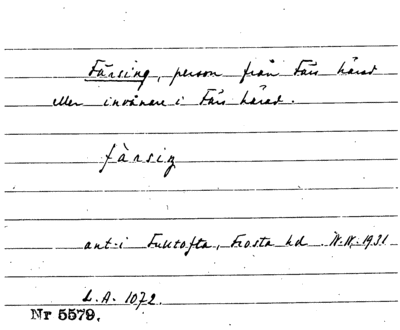 Färsing, person från Färs härad
eller invånare i Färs härad.
färsiŋ
ant. i Fulltofta, Frosta hd. W.W. 1931
L.A. 1072.
Nr 5579.